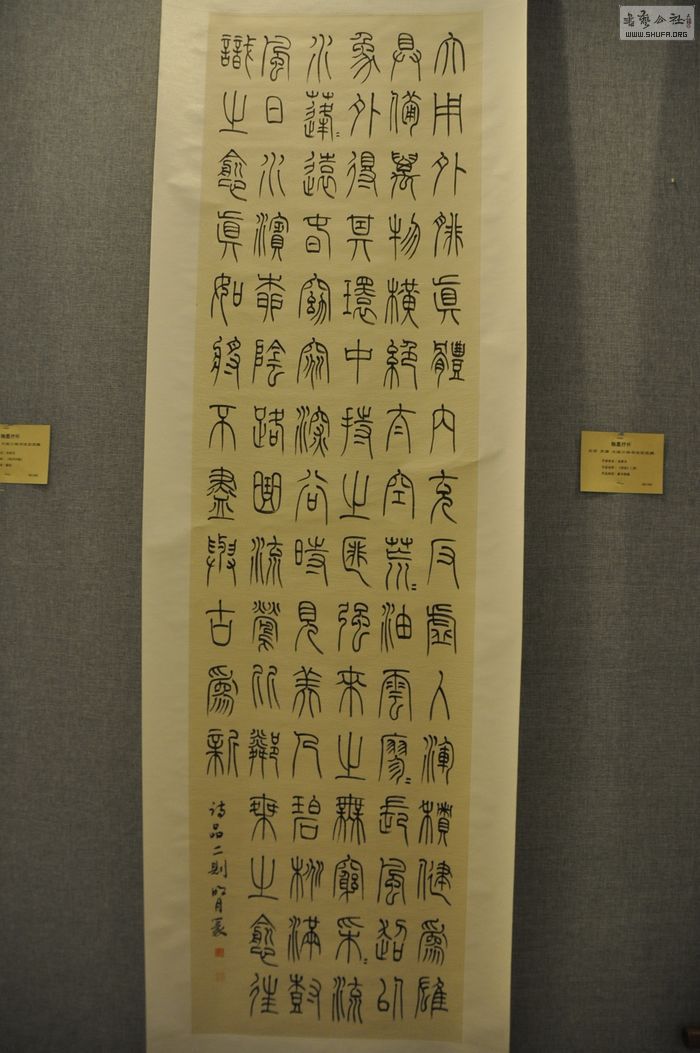 書藝公社
WWW.SHUFA.ORG
大用外腓真體内充反虛入渾積健爲雄
具備萬物橫絕太空荒〻油雲寥〻長風超以
象外得其環中持之匪強來之無窮采〻流
水蓬〻遠春窈窕深谷時見美人碧桃滿樹
風日水濱柳陰路曲流鶯比鄰乘之愈往
識之愈眞如將不盡與古爲新
詩品二則
翰墨抒怀
翰墨抒怀